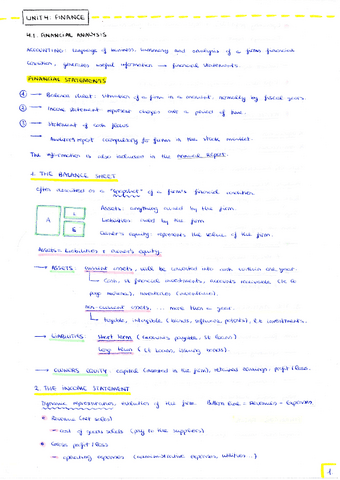 UNIT 4: FINANCE
4.1. FINANCIAL ANALYSIS
ACCOUNTING: language of business, summary and analysis of a firm's financial
condition, generates useful information → financial statements.
FINANCIAL STATEMENTS
1 → Balance sheet: situation of a firm in a moment, normally by fiscal year.
2 → Income statement: changes over a period of time.
3 → Statement of cash flows
→ Auditor's report compulsory for firms in the stock market.
The information is also included in the annual report.
1. THE BALANCE SHEET
Often described as a "snapshot" of a firm's financial condition
Assets: anything owned by the firm.
A L Liabilities: owed by the firm
E Owner's equity: represents the value of the firm.
Assets = Liabilities + Owner's equity
→ ASSETS: Current assets, will be converted into cash within one year.
Cash, financial investments, accounts receivable
inventories
Non-current assets, ... more than a year.
Tangible, intangible (brands, software, patents), investments.
→ LIABILITIES: Short term (accounts payable, loans)
Long term
→ OWNERS EQUITY: capital (invested in the firm), retained earnings, profit/loss.
2. THE INCOME STATEMENT
Dynamic representation, evolution of the firm. Bottom line = Revenues - Expenses
Revenue (net sales)
- cost of goods sold (pay to the suppliers)
Gross profit/loss
- operating expenses (administrative expenses, utilities...)
1